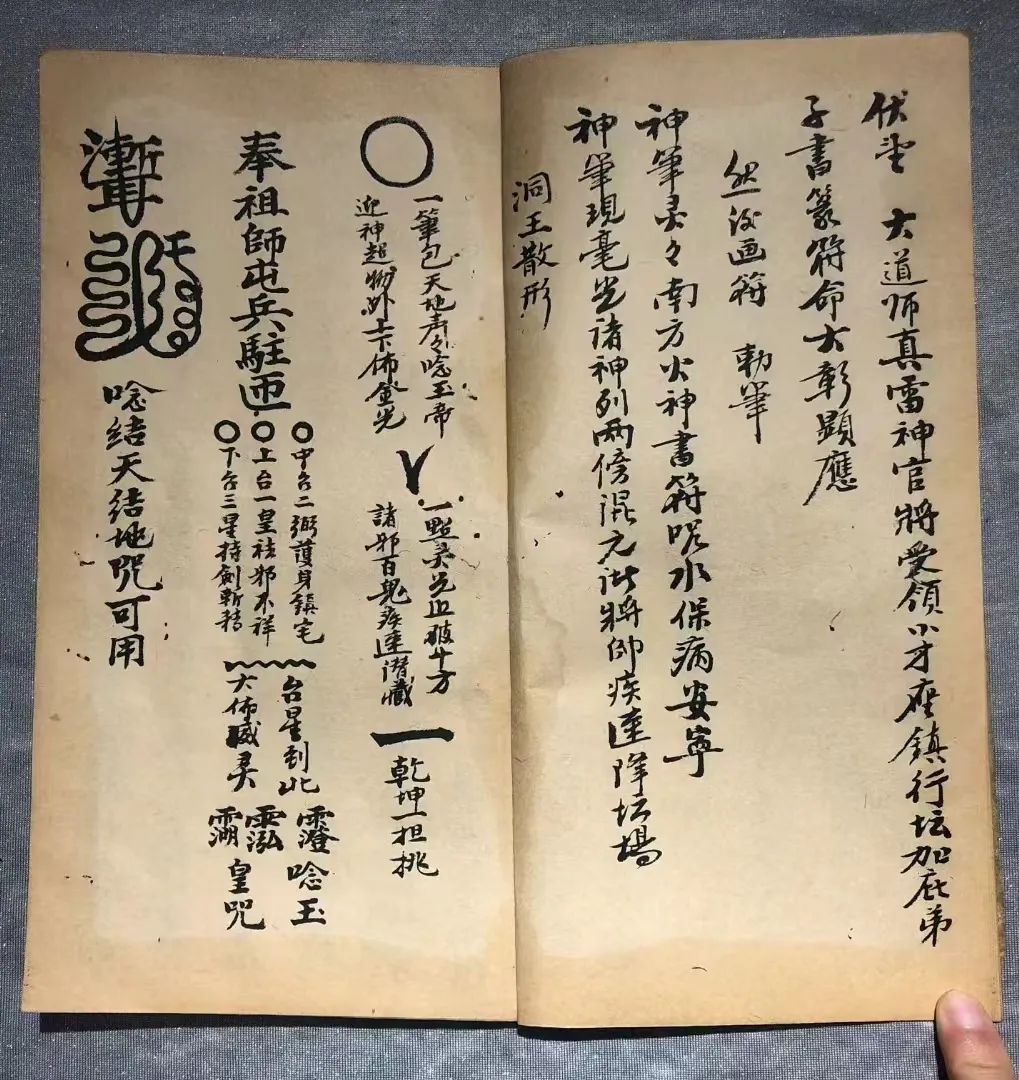 伏望　大道师真雷神官將受領小才座鎮行坛加庇弟
子書篆符命大彰顕應
然後画符　勅筆
神筆灵々南方火神書符咒水保病安寧
神筆現毫光諸神列两傍混元諸將帅疾速降坛場
洞王散形
一筆包天地声々唸玉帝
迎神超物外上下佈金光
一點灵光正破十方
諸邪百鬼疾速潜藏
乾坤一担挑
中台二弼護身鎮宅
上台一皇祛邪不祥
下台三星持劍斬
台星到此
大佈威灵
唸玉
皇咒
奉祖師屯兵駐
唸結天結地咒可用